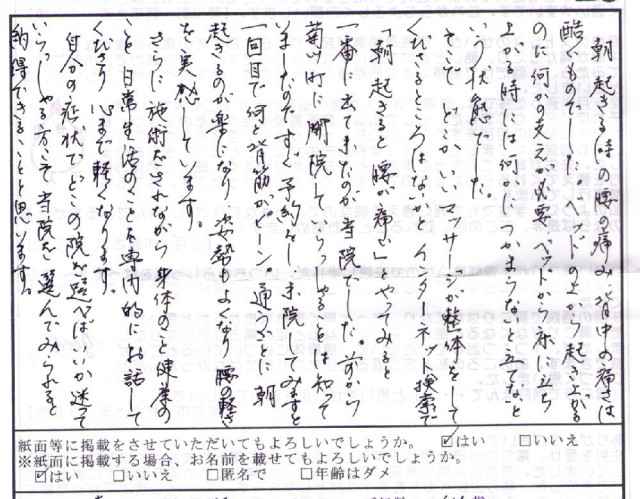 朝起きる時の腰の痛み、背中の痛さは
酷いものでした。ベッドの上から起き上がる
のに何かの支えが必要、ベットから床に立ち
上がる時には何かにつかまらないと立てないと
いう状態でした。
そこでどこかいいマッサージか整体をして
くださるところはないか、インターネット検索で
「朝起きると腰が痛い」でやってみると
一番に出てきたのが寺院でした。前から
菊川町に開院していらっしゃるのは知って
いましたのですぐ予約をし、来院してみますと
一回目で何と背筋がピーン。通うごとに朝
起きるのが楽になり、姿勢もよくなり腰の軽さ
を実感しています。
さらに施術をされながら身体のこと健康の
こと日常生活のことを専門的にお話して
くださり心まで軽くなります。
自分の症状でどこの院を選べばいいか迷って
いらっしゃる方、寺院を選んでみられると
納得できることと思います。
紙面等に掲載をさせていただいてもよろしいでしょうか。 ☑はい □いいえ
※紙面に掲載する場合、お名前を載せてもよろしいでしょうか。
☑はい □いいえ □匿名で □年齢はダメ